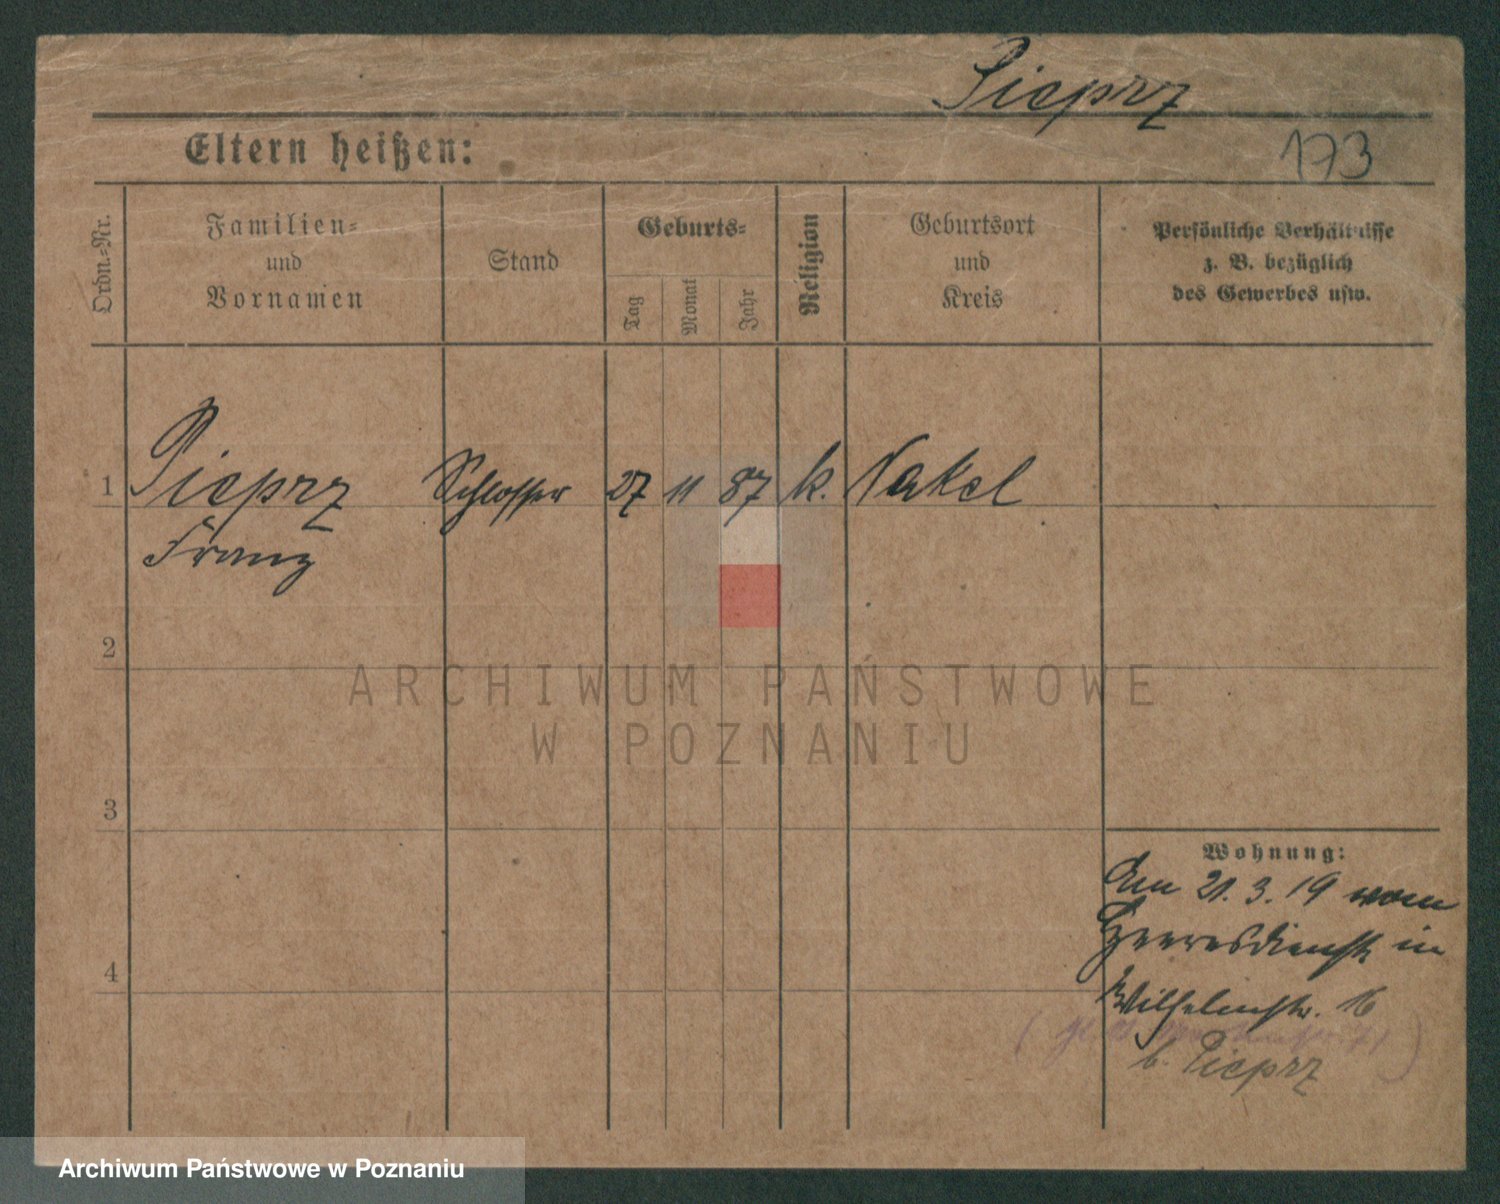 Pieprz
Eltern heißen:
173
Ordn.-Nr.
Familien-
und
Vornamen
Stand
Geburts-
Tag
Monat
Jahr
Religion
Geburtsort
und
Kreis
Persönliche Verhältnisse
z. B. bezüglich
des Gewerbes usw.
1 Pieprz Schlosser 27 11 87 k. Nakel
Franz
2
ARCHIWUM PAŃSTWOWE
W POZNANIU
3
Wohnung:
Am 21.3.19 vom
Heeresdienst in
4
Wilhelmstr. 16
b. Pieprz
Archiwum Państwowe w Poznaniu